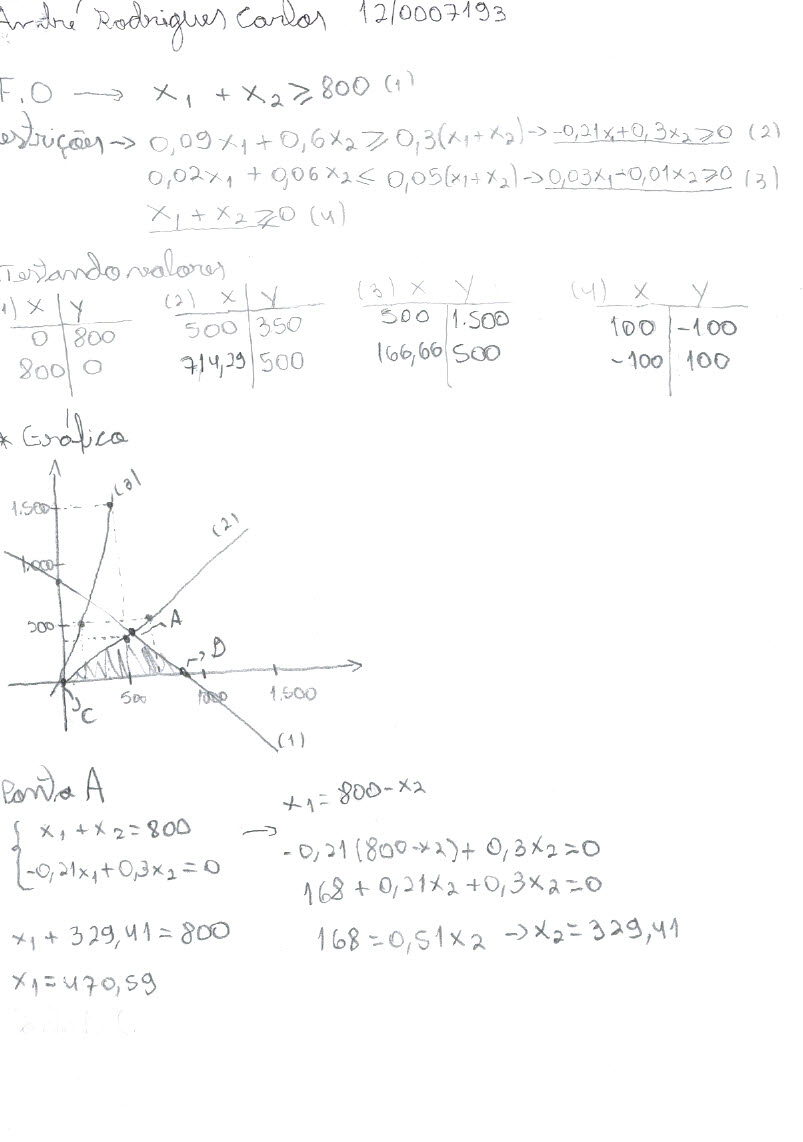 André Rodrigues Carlos 12/0007193
F.O → x1 + x2 ≥ 800 (1)
estrições → 0,09x1 + 0,6x2 ≥ 0,3(x1+x2) → -0,21x1+0,3x2 ≥ 0 (2)
0,02x1 + 0,06x2 ≤ 0,05(x1+x2) → 0,03x1-0,01x2 ≥ 0 (3)
x1 + x2 ≥ 0 (4)
Testando valores
1) X Y (2) X Y (3) X Y (4) X Y
0 800 500 350 500 1.500 100 -100
800 0 714,29 500 166,66 500 -100 100
* Gráfico
(3)
1.500
(2)
1.000
500 A
B
C 500 1000 1.500
(1)
Ponto A
x1 = 800-x2
x1 + x2 = 800 →
-0,21(800-x2) + 0,3x2 = 0
-0,21x1+0,3x2 = 0
168 + 0,21x2 + 0,3x2 = 0
x1 + 329,41 = 800
168 = 0,51x2 → x2 = 329,41
x1 = 470,59